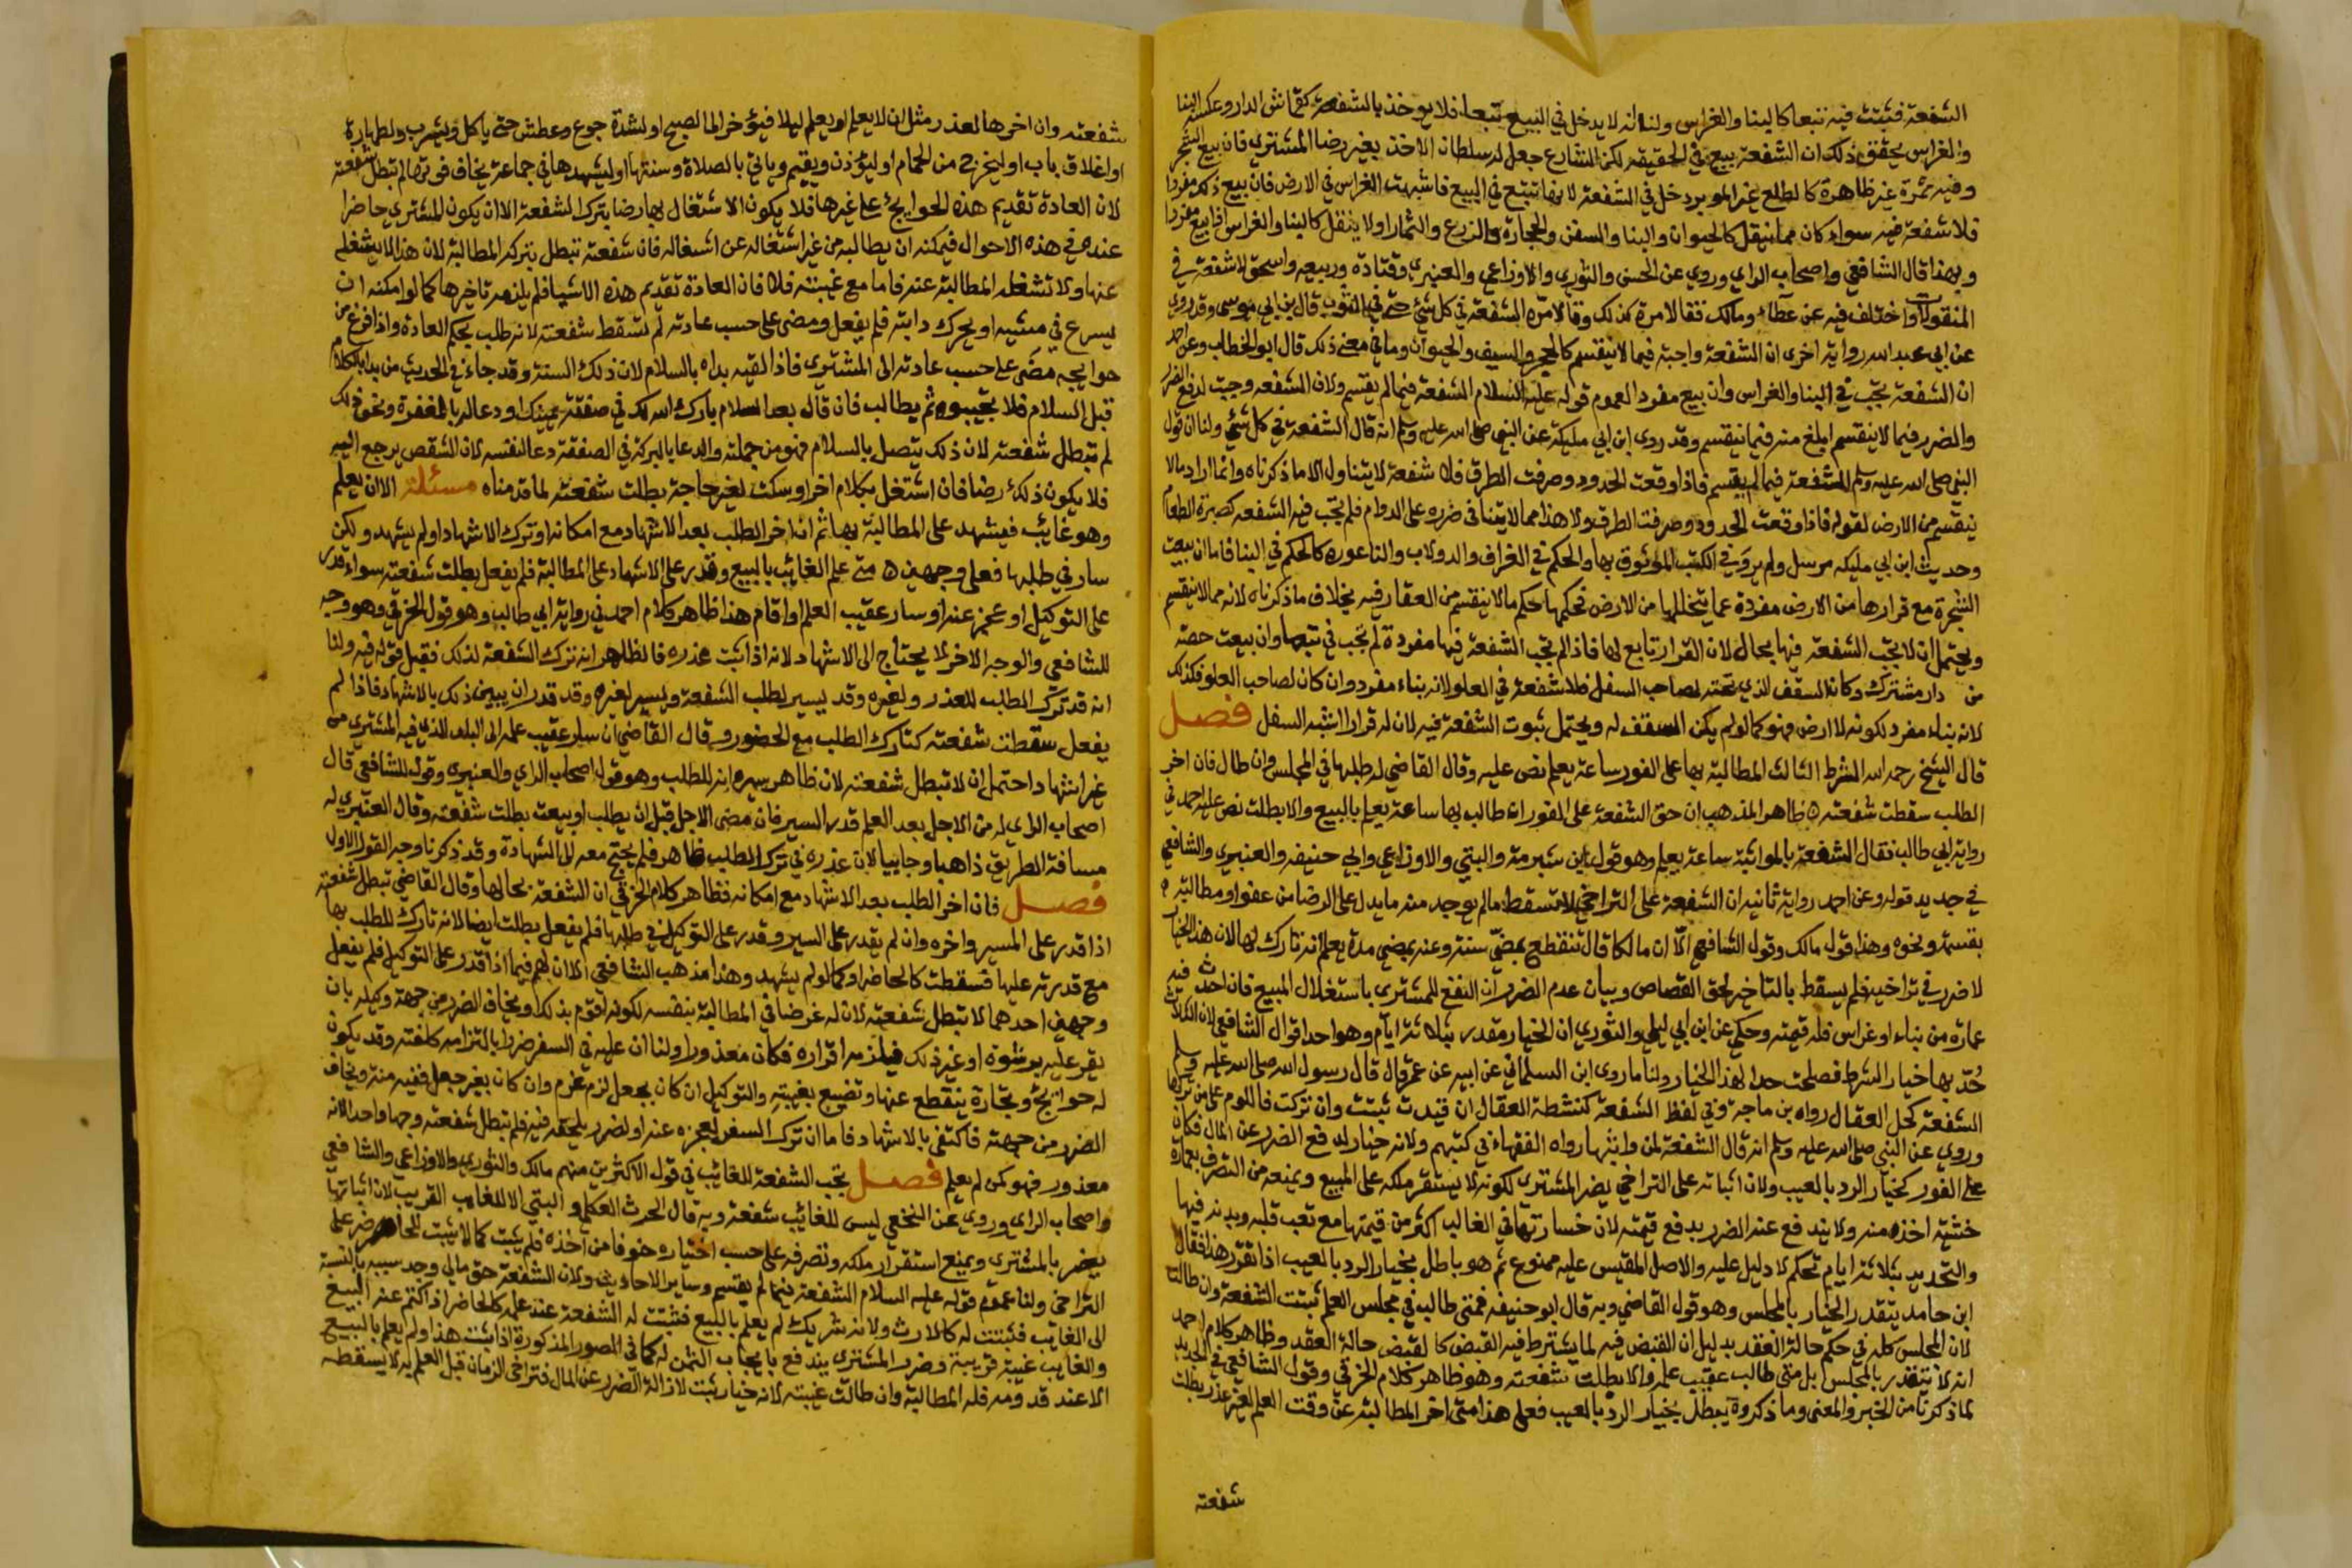 الشفعة فثبتت فيه تبعا كالبنا والغراس ولنا انه لا يدخل في البيع تبعا فلا يوخذ بالشفعة كقماش الدار وعكسه البنا
والغراس يحقق ذلك ان الشفعة بيع في الحقيقه لكن الشارع جعل له سلطان الاخذ بغير رضا المشتري فان بيع الشجر
وفيه ثمرة غير ظاهرة كالطلع غير الموبر دخل في الشفعة لانها تتبع في البيع فاشبهت الغراس في الارض فان بيع ذلك مفردا
فلا شفعة فيه سواء كان مما ينقل كالحيوان والبنا والسفن والحجارة والزرع والثمار او لا ينقل كالبنا والغراس اذا بيع مفردا
وبهذا قال الشافعي واصحاب الراي وروي عن الحسن والثوري والاوزاعي والعنبري وقتادة وربيعه واسحق لا شفعة في
المنقولات واختلف فيه عن عطاء ومالك فقالا مرة كذلك وقالا مرة الشفعة في كل شي حتى في الثوب قال بن ابي موسى وقد روي
عن ابي عبد الله رواية اخرى ان الشفعة واجبة فيما لا ينقسم كالحجر والسيف والحيوان وما في معنى ذلك قال ابو الخطاب وعن احمد
ان الشفعة تجب في البنا والغراس وان بيع مفردا لعموم قوله عليه السلام الشفعة فيما لم يقسم ولان الشفعه وجبت لدفع الضرر
والضرر فيما لا ينقسم ابلغ منه فيما ينقسم وقد روى ابن ابي مليكة عن النبي صلى الله عليه وسلم انه قال الشفعة في كل شي ولنا ان قول
النبي صلى الله عليه وسلم الشفعة فيما لم يقسم فاذا وقعت الحدود وصرفت الطرق فلا شفعة لا يتناول الا ما ذكرناه وانما اراد ما لا
ينقسم من الارض لقوله فاذا وقعت الحدود وصرفت الطرق ولان هذا مما لا يتباقى ضرره على الدوام فلم تجب فيه الشفعه كصبرة الطعام
وحديث ابن ابي مليكه مرسل ولم يروَ في الكتب الموثوق بها والحكم في الغراف والدولاب والناعوره كالحكم في البنا فاما ان بيعت
الشجرة مع قرارها من الارض مفردة عما يتخللها من الارض فحكمها حكم ما لا ينقسم من العقار فيه بخلاف ما ذكرناه لانه مما لا ينقسم
ويحتمل ان لا تجب الشفعة فيها بحال لان القرار تابع لها فاذا لم تجب الشفعة فيها مفردة لم تجب في تبعها وان بيعت حصة
من دار مشترك وكان السقف الذي تحته لصاحب السفل فلا شفعة في العلو لانه بناء مفرد وان كان لصاحب العلو فكذلك
لانه بناء مفرد لكونه لا ارض فهو كما لو لم يكن السقف له ويحتمل ثبوت الشفعة فيه لان له قرارا اشبه السفل فصل
قال الشيخ رحمه الله الشرط الثالث المطالبة بها على الفور ساعة يعلم نص عليه وقال القاضي له طلبها في المجلس وان طال فان اخر
الطلب سقطت شفعته ه ظاهر المذهب ان حق الشفعة على الفور ان طالب بها ساعة يعلم بالبيع والا بطلت نص عليه احمد في
رواية ابي طالب فقال الشفعة بالمواثبة ساعة يعلم وهو قول ابن شبرمة والبتي والاوزاعي وابي حنيفه والعنبري والشافعي
في جديد قوله وعن احمد رواية ثانية ان الشفعة على التراخي لا تسقط ما لم يوجد منه ما يدل على الرضا من عفو او مطالبة ه
بقسمة ونحوه وهذا قول مالك وقول الشافعي الا ان مالكا قال تنقطع بمضي سنة وعنه بمضي مدة يعلم انه تارك لها لان هذا الخيار
لا ضرر في تراخيه فلم يسقط بالتاخير كحق القصاص وبيان عدم الضرر ان النفع للمشتري باستغلال المبيع فان احدث فيه
عمارة من بناء او غراس فله قيمته وحكي عن ابن ابي ليلى والثوري ان الخيار مقدر بثلاثة ايام وهو احد اقوال الشافعي لان الثلاث
حُدّ بها خيار الشرط فصلحت حدا لهذا الخيار ولنا ما روى ابن السلماني عن ابيه عن عمر قال قال رسول الله صلى الله عليه وسلم
الشفعة كحل العقال رواه بن ماجة وفي لفظ الشفعة كنشطة العقال ان قيدت ثبتت وان تركت فاللوم على من تركها
وروي عن النبي صلى الله عليه وسلم انه قال الشفعة لمن واثبها رواه الفقهاء في كتبهم ولانه خيار لدفع الضرر عن المال فكان
على الفور كخيار الرد بالعيب ولان اثباته على التراخي يضر المشتري لكونه لا يستقر ملكه على المبيع ويمنعه من التصرف بعمارة
خشية اخذه منه ولا يندفع عنه الضرر بدفع قيمته لان خسارتها في الغالب اكثر من قيمتها مع تعب قلبه وبدنه فيها
والتحديد بثلاثة ايام تحكم لا دليل عليه والاصل المقيس عليه ممنوع ثم هو باطل بخيار الرد بالعيب اذا تقرر هذا فقال
ابن حامد يتقدر الخيار بالمجلس وهو قول القاضي وبه قال ابو حنيفه فمتى طالب في مجلس العلم ثبتت الشفعة وان طالتا
لان المجلس كله في حكم حالة العقد بدليل ان القبض فيه لما يشترط فيه القبض كالقبض حالة العقد وظاهر كلام احمد
انه لا يتقدر بالمجلس بل متى طالب عقيب علمه والا بطلت شفعته وهو ظاهر كلام الخرقي وقول الشافعي في الجديد
لما ذكرنا من الخبر والمعنى وما ذكروه يبطل بخيار الرد بالعيب فعلى هذا متى اخر المطالبة عن وقت العلم لغير عذر بطلت
شفعته
شفعته وان اخرها لعذر مثل ان لا يعلم او يعلم ليلا فيؤخر الى الصبح او لشدة جوع وعطش حتى ياكل ويشرب ولطهارة
او اغلاق باب او ليخرج من الحمام او ليؤذن ويقيم وياتي بالصلاة وسنتها او ليشهدها في جماعة يخاف فوتها لم تبطل شفعته
لان العادة تقديم هذه الحوايج على غيرها فلا يكون الاشتغال بها رضا بترك الشفعة الا ان يكون المشتري حاضرا
عنده في هذه الاحوال فيمكنه ان يطالبه من غير اشتغاله عن اشغاله فان شفعته تبطل بتركه المطالبة لان هذا لا يشغله
عنها ولا تشغله المطالبة عنه فاما مع غيبته فلا فان العادة تقديم هذه الاشيا فلم يلزمه تاخرها كما لو امكنه ان
يسرع في مشيه او يحرك دابته فلم يفعل ومضى على حسب عادته لم تسقط شفعته لانه طلب بحكم العادة واذا فرغ من
حوايجه مضى على حسب عادته الى المشتري فاذا لقيه بداه بالسلام لان ذلك السنة وقد جاء في الحديث من بدا بالكلام
قبل السلام فلا تجيبوه ثم يطالب فان قال بعد السلام بارك الله لك في صفقة يمينك او دعا له بالمغفرة ونحو ذلك
لم تبطل شفعته لان ذلك يتصل بالسلام فهو من جملته والدعا بالبركة في الصفقة دعا لنفسه لان الشقص يرجع اليه
فلا يكون ذلك رضا فان اشتغل بكلام اخر او سكت لغير حاجة بطلت شفعته لما قدمناه مسئلة الا ان يعلم
وهو غايب فيشهد على المطالبة بها ثم ان اخر الطلب بعد الاشهاد مع امكانه او ترك الاشهاد او لم يشهد ولكن
سار في طلبها فعلى وجهين ه متى علم الغائب بالبيع وقدر على الاشهاد على المطالبة فلم يفعل بطلت شفعته سواء قدر
على التوكيل او عجز عنه او سار عقيب العلم او اقام هذا ظاهر كلام احمد في رواية ابي طالب وهو قول الخرقي وهو وجه
للشافعي والوجه الاخر لا يحتاج الى الاشهاد لانه اذا ثبت عذره فالظاهر انه ترك الشفعة لذلك فقبل قوله فيه ولنا
انه قد ترك الطلب للعذر ولغيره وقد يسير لطلب الشفعة ويسير لغيره وقد قدر ان يبين ذلك بالاشهاد فاذا لم
يفعل سقطت شفعته كتارك الطلب مع الحضور وقال القاضي ان سار عقيب علمه الى البلد الذي فيه المشتري من
غير اشهاد احتمل ان لا تبطل شفعته لان ظاهر سيره انه للطلب وهو قول اصحاب الراي والعنبري وقول للشافعي قال
اصحاب الراي له من الاجل بعد العلم قدر السير فان مضى الاجل قبل ان يطلب او يبعث بطلت شفعته وقال العنبري له
مسافة الطريق ذاهبا وجاييا لان عذره في ترك الطلب ظاهر فلم يحتج معه الى الشهادة وقد ذكرنا وجه القول الاول
فصل فان اخر الطلب بعد الاشهاد مع امكانه فظاهر كلام الخرقي ان الشفعة بحالها وقال القاضي تبطل شفعته
اذا قدر على المسير واخره وان لم يقدر على السير وقدر على التوكيل في طلبها فلم يفعل بطلت ايضا لانه تارك للطلب بها
مع قدرته عليها فسقطت كالحاضر او كما لو لم يشهد وهذا مذهب الشافعي الا ان لهم فيما اذا قدر على التوكيل فلم يفعل
وجهين احدهما لا تبطل شفعته لان له غرضا في المطالبة بنفسه لكونه اقوم بذلك او يخاف الضرر من جهة وكيله بان
يقر عليه برشوة او غير ذلك فيلزمه اقراره فكان معذورا ولنا ان عليه في السفر ضررا بالتزامه كلفته وقد يكون
له حوائج وتجارة ينقطع عنها وتضيع بغيبته والتوكيل ان كان بجعل لزمه غرم وان كان بغير جعل ففيه منة ويخاف
الضرر من جهته فاكتفي بالاشهاد فاما ان ترك السفر لعجزه عنه او لضرر يلحقه فيه فلم تبطل شفعته وجها واحدا لانه
معذور فهو كمن لم يعلم فصل تجب الشفعة للغائب في قول الاكثرين منهم مالك والثوري والاوزاعي والشافعي
واصحاب الراي وروي عن النخعي ليس للغائب شفعة وبه قال الحرث العكلي والبتي الا للغايب القريب لان اثباتها
يضر بالمشتري ويمنع استقرار ملكه وتصرفه على حسب اختياره خوفا من اخذه فلم يثبت كما لا يثبت للحاضر على
التراخي ولنا عموم قوله عليه السلام الشفعة فيما لم يقسم وساير الاحاديث ولان الشفعة حق مالي وجد سببه بالنسبة
الى الغايب فثبتت له كالارث ولانه شريك لم يعلم بالبيع فتثبت له الشفعة عند علمه كالحاضر اذا كتم عنه البيع
والغايب غيبة قريبة وضرر المشتري يندفع بايجاب الثمن له كما في الصور المذكورة اذا ثبت هذا ولم يعلم بالبيع
الا عند قدومه فله المطالبة وان طالت غيبته لانه خيار ثبت لازالة الضرر عن المال فتراخي الزمان قبل العلم به لا يسقطه